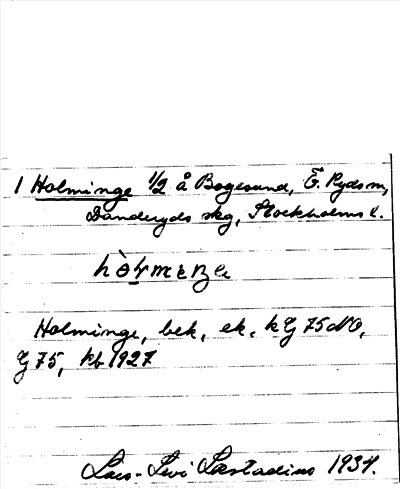 1 Holminge 1/2 å Bogesund, Ö. Ryds sn,
Danderyds skg, Stockholms l.
Holminge, bek, ek, k G 75 NO,
G 75, kb 1927
Lars-Levi Læstadius 1934.